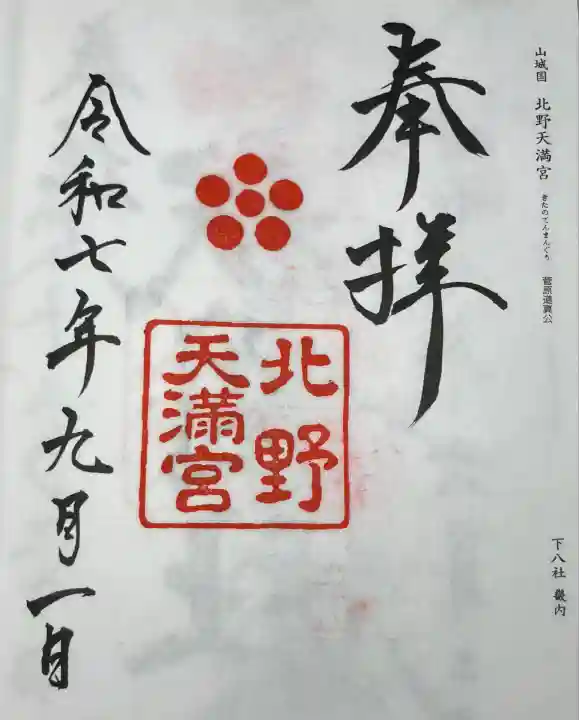 山城国 北野天満宮 きたのてんまんぐう 菅原道真公
下八社 畿内
奉拝
北野
天満宮
令和七年九月一日